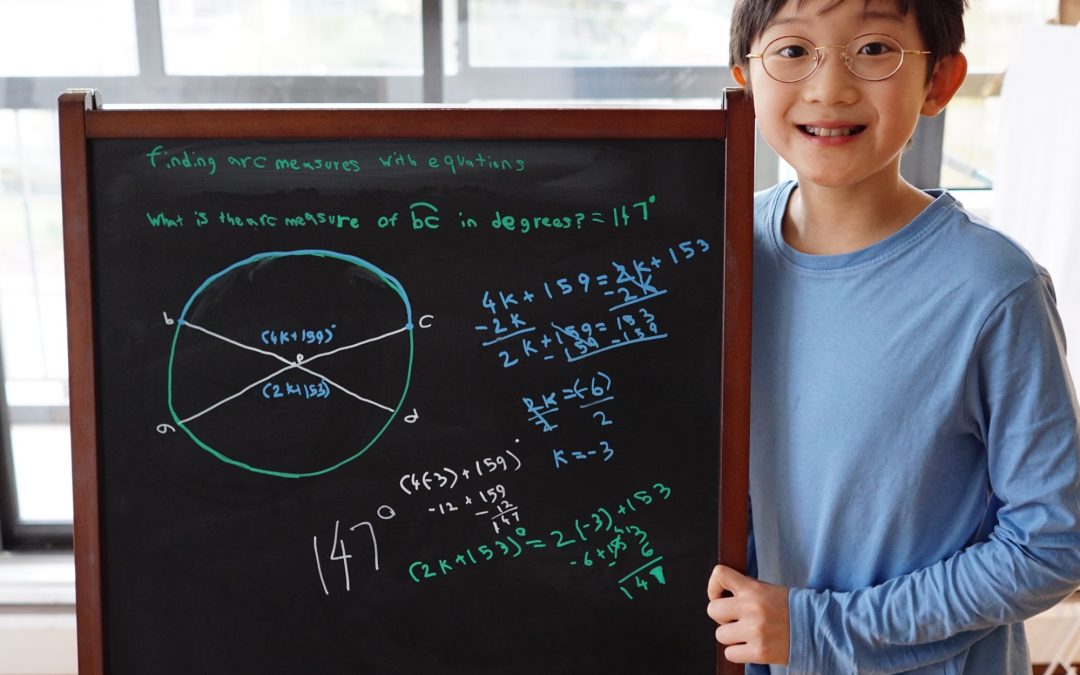 finding arc measures with equations
What is the arc measure of b͡c in degrees? = 147°
4k+159=2k+153
-2k -2k
2k+159=153
-159 -159
2k=(-6)
2 2
k=-3
b
c
(4k+159)°
(2k+153)
a
d
(4(-3)+159)°
-12+159
-12
147
147°
(2k+153)°=2(-3)+153
-6+153
6
147